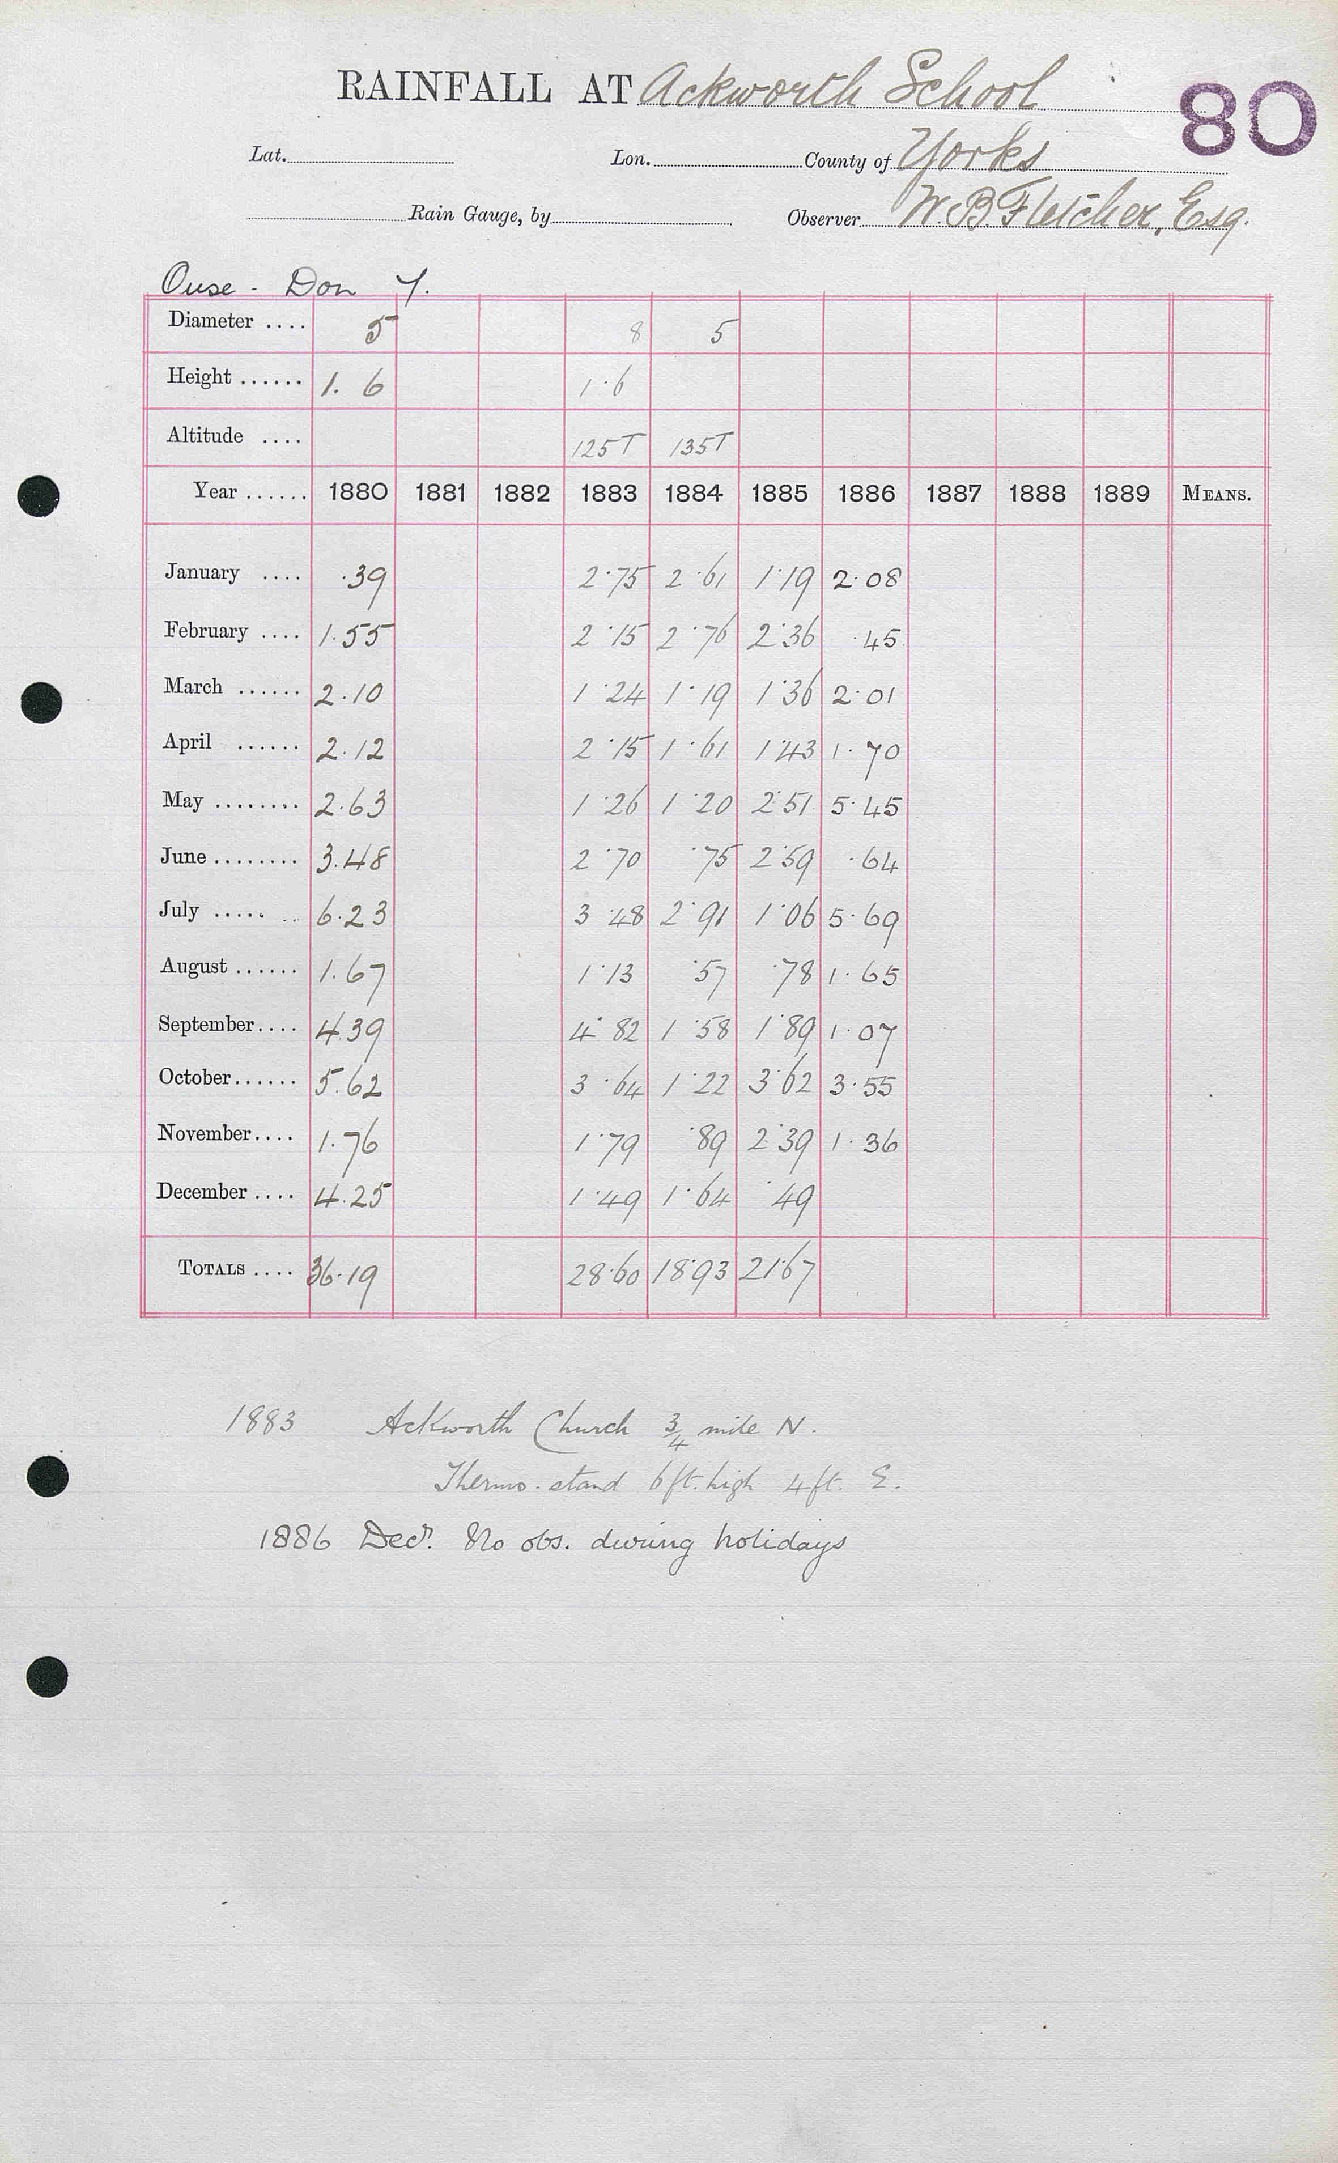 RAINFALL AT Ackworth School
80
Lat. Lon. County of Yorks
Rain Gauge, by Observer W. B. Fletcher, Esq.
Ouse - Don Y.
Diameter .... 5 8 5
Height ...... 1. 6 1·6
Altitude .... 125T 135T
Year ...... 1880 1881 1882 1883 1884 1885 1886 1887 1888 1889 MEANS.
January .... ·39 2·75 2·61 1·19 2·08
February .... 1·55 2·15 2·76 2·36 ·45
March ...... 2·10 1·24 1·19 1·36 2·01
April ...... 2·12 2·15 1·61 1·43 1·70
May ........ 2·63 1·26 1·20 2·51 5·45
June ........ 3·48 2·70 ·75 2·59 ·64
July ........ 6·23 3·48 2·91 1·06 5·69
August ...... 1·67 1·13 ·57 ·78 1·65
September .... 4·39 4·82 1·58 1·89 1·07
October ...... 5·62 3·64 1·22 3·62 3·55
November .... 1·76 1·79 ·89 2·39 1·36
December .... 4·25 1·49 1·64 ·49
TOTALS .... 36·19 28·60 18·93 21·67
1883 Ackworth Church 3/4 mile N.
Thermo. stand 6 ft. high 4 ft. E.
1886 Decr. No obs. during holidays